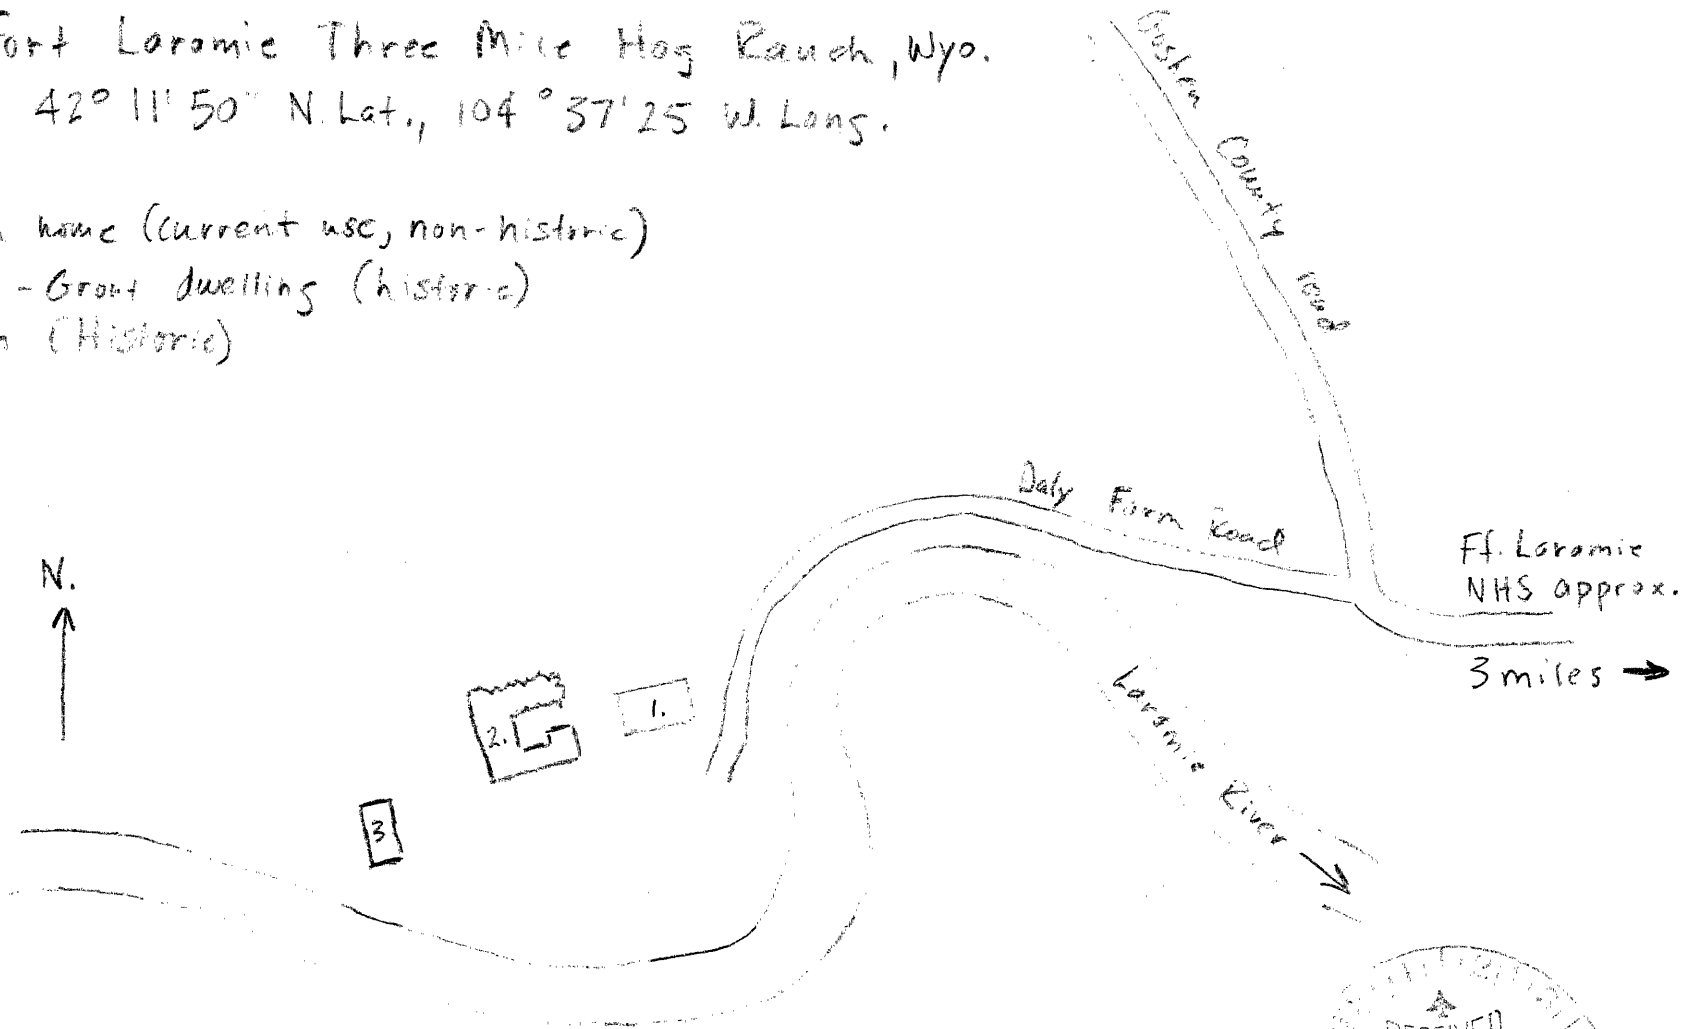 Fort Laramie Three Mile Hog Ranch, Wyo.
42° 11' 50" N. Lat., 104° 37' 25 W. Long.
home (current use, non-historic)
- Grout dwelling (historic)
(Historic)
Goshen County road
Daly Farm Road
Ft. Laramie
NHS approx.
3 miles →
N.
1.
2.
3
Laramie River
RECEIVED